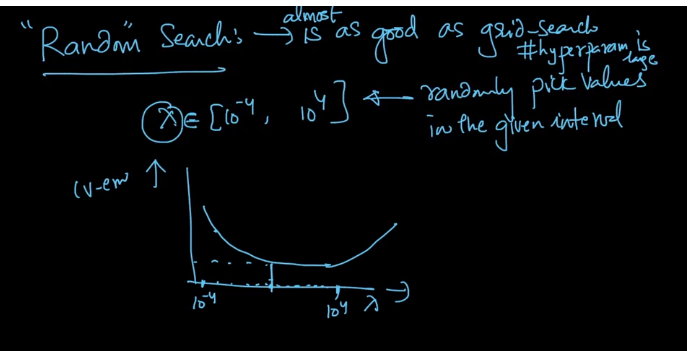 "Random" Search: → almost is as good as grid-search
#hyperparam is large
λ ∈ [10⁻⁴, 10⁴] ← randomly pick values
in the given interval
CV-err ↑
10⁻⁴ 10⁴ λ →